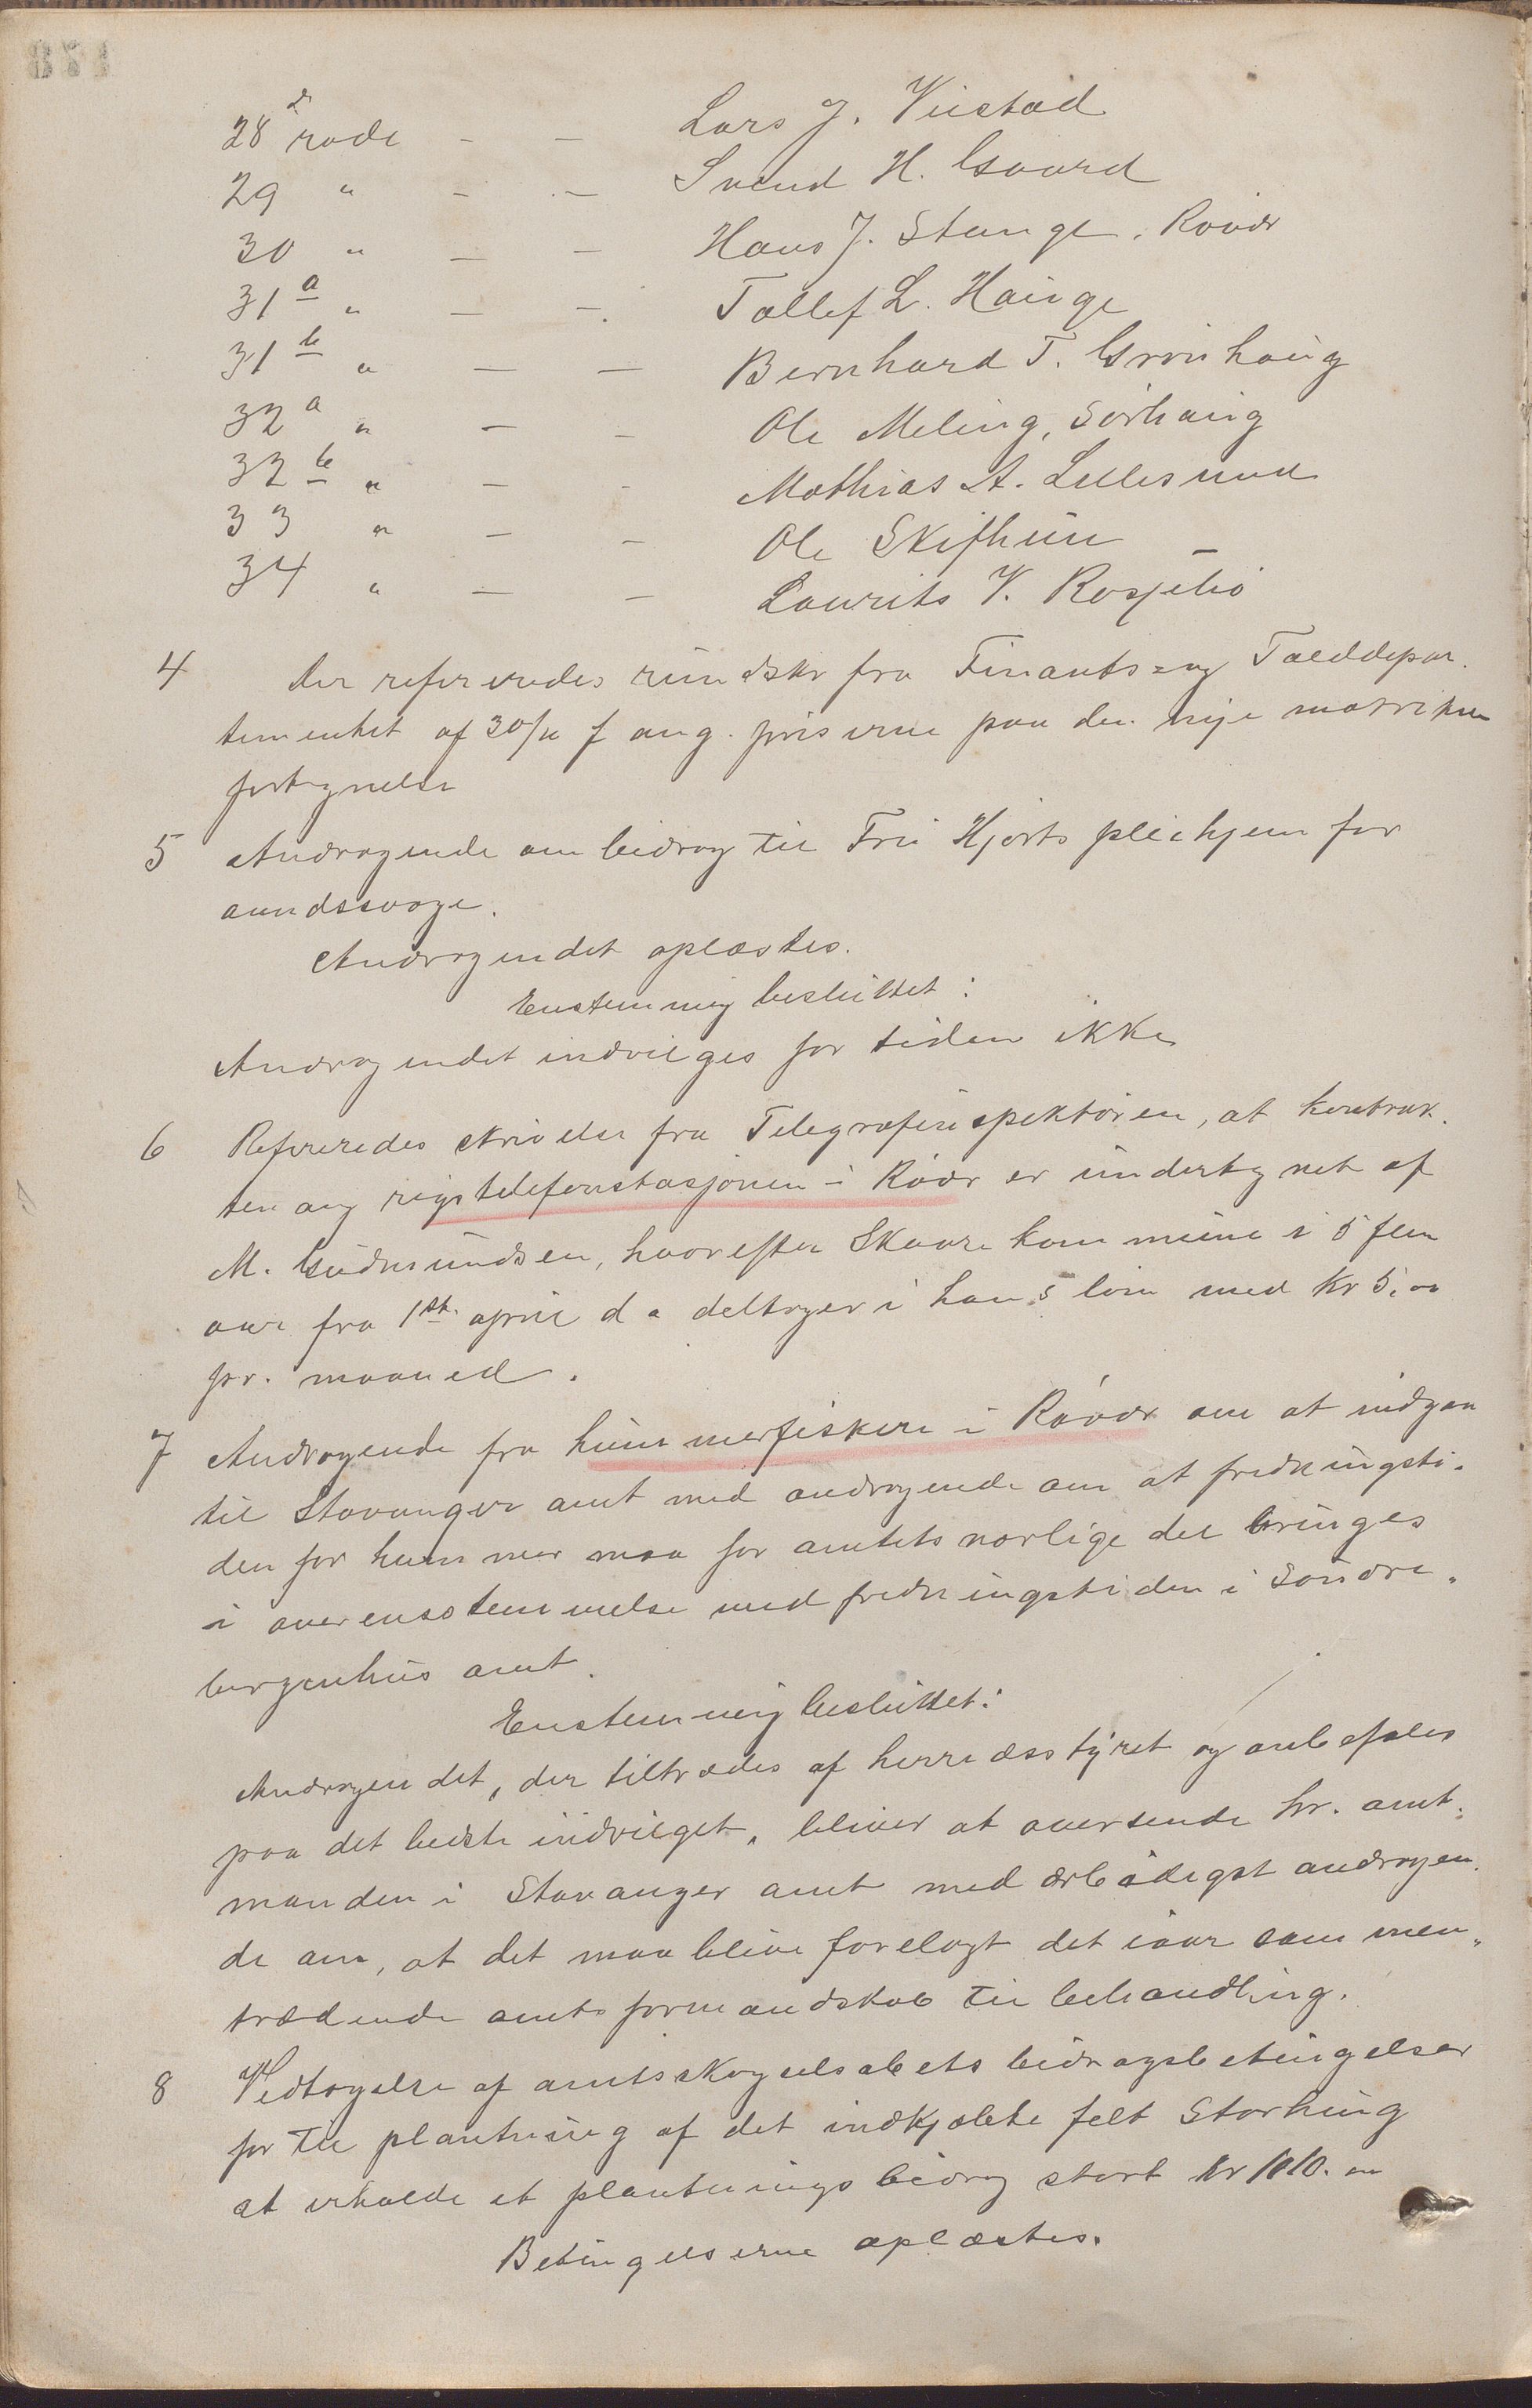 28de rode - - Lars J. Vikstad
29 " - - Svend H. Gaard
30 " - - Hans J. Stange, Rövær
31a " - - Tollef L. Hauge
31b " - - Bernhard T. Grönhaug
32a " - - Ole Meling, Sörhaug
32b " - - Mathias A. Lillesund
33 " - - Ole Skifhun
34 " - - Laurits V. Rosjebö
4 Der refereredes rundskr fra Finants- og Tolddepar-
tementet af 30/11 f ang. priserne paa den nye matrikul
fortegnelse
5 Andragende om bidrag til Fru Hjorts pleiehjem for
aandssvage.
Andragendet oplæstes.
Enstemmig besluttet:
Andragendet indvilges for tiden ikke
6 Refereredes skrivelse fra Telegrafinspektören, at kontrak-
ten ang rigstelefonstasjonen i Rövær er undertegnet af
M. Gudmundsen, hvorefter Skaare kommune i 5 fem
aar fra 1ste april d a deltager i hans lön med kr 5,00
pr. maaned.
7 Andragende fra hummerfiskere i Rövær om at indgaa
til Stavanger amt med andragende om at fredningsti-
den for hummer maa for amtets nordlige del bringes
i overensstemmelse med fredningstiden i Söndre-
bergenhus amt.
Enstemmig besluttet:
Andragendet, der tiltrædes af herredsstyret og anbefales
paa det bedste indvilget, bliver at oversende hr. amt-
manden i Stavanger amt med ærbödigst andragen-
de om, at det maa blive forelagt det iaar sammen-
trædende amtsformandskab til behandling.
8 Vedtagelse af amtsskogselskabets bidragsbetingelser
for til plantning af det indkjöbte felt Storhaug
at erholde et plantningsbidrag stort kr 100.00
Betingelserne oplæstes.